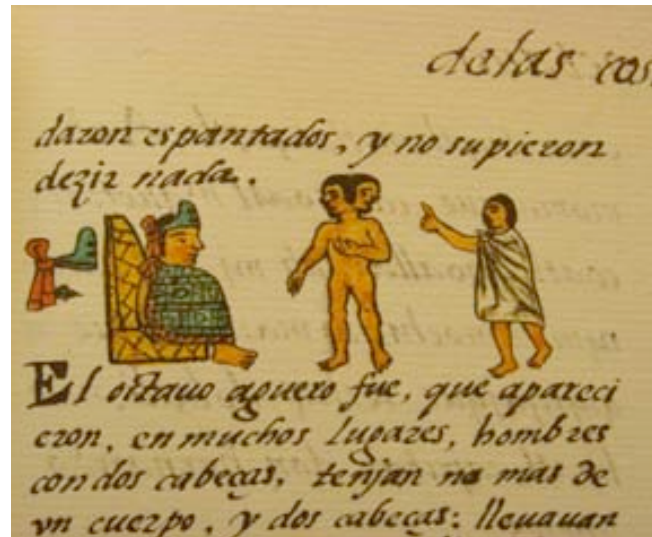 delas cos
daron espantados, y no supieron
dezir nada.
El octauo aguero fue, que apareci
eron, en muchos lugares, hombres
con dos cabeças, tenjan no mas de
vn cuerpo, y dos cabeças: lleuauan